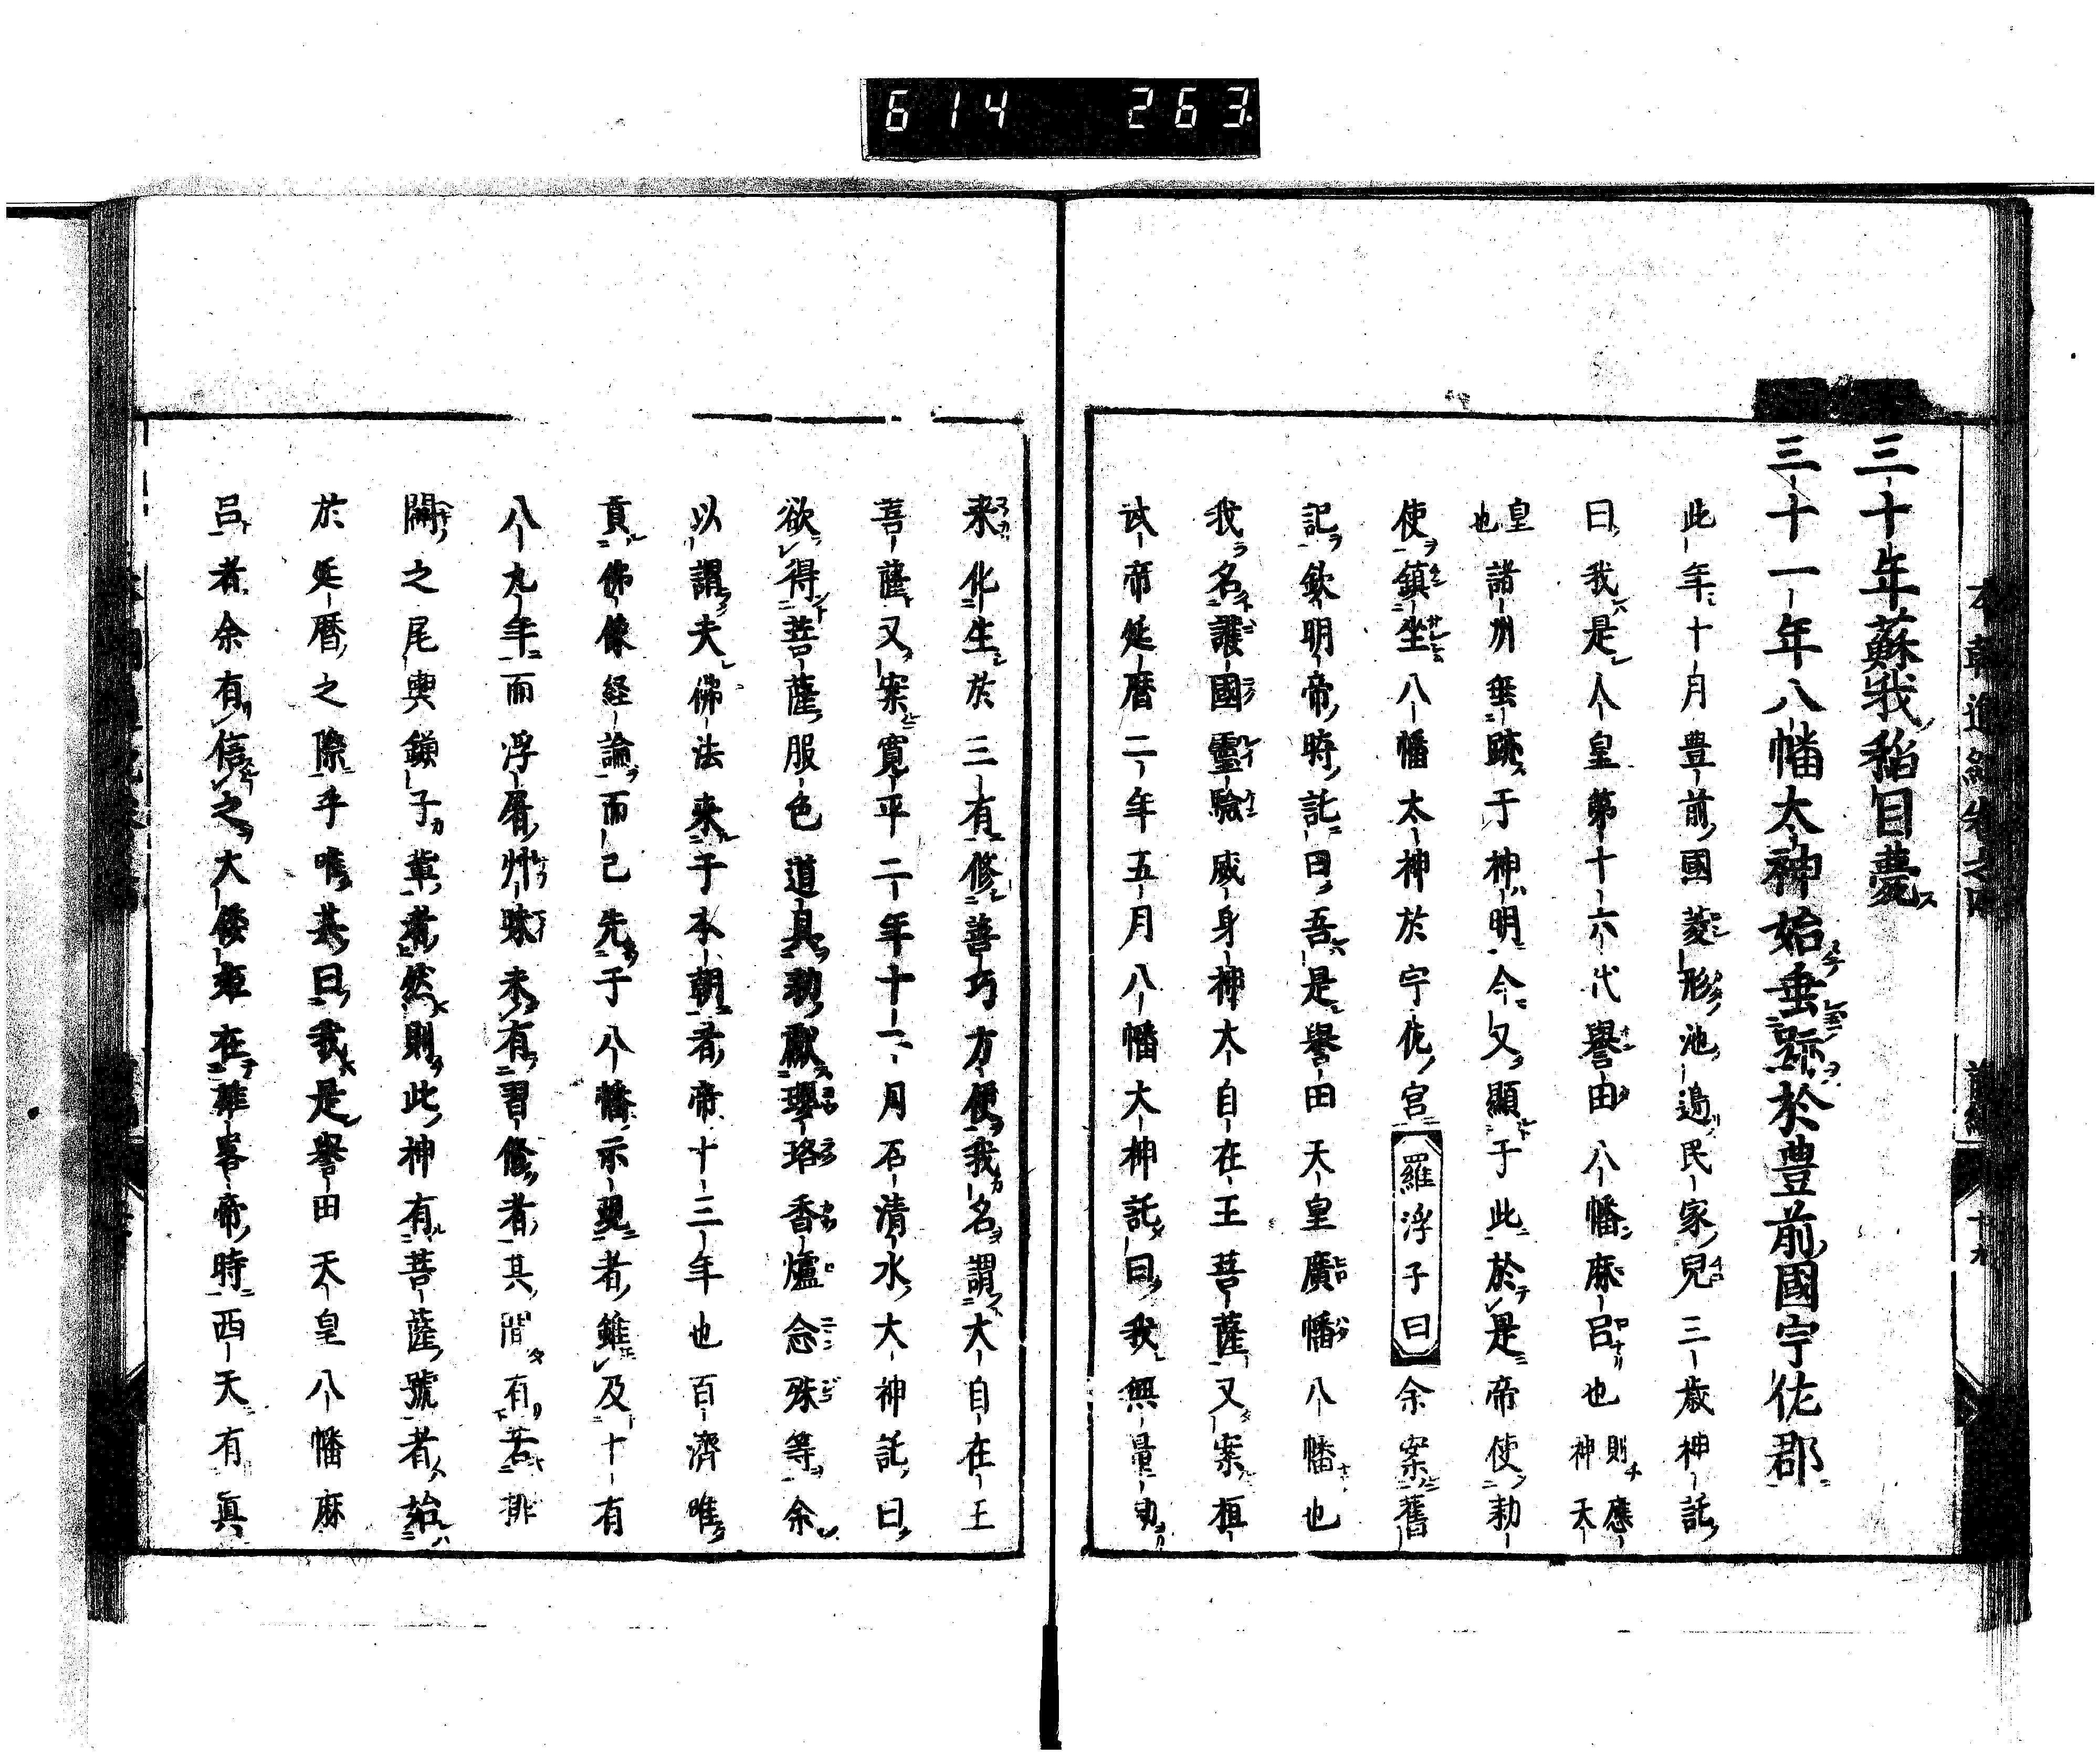 614 263
三十年蘇我稲目薨
三十一年八幡太神始垂跡於豊前國宇佐郡
此年十月豊前國菱形池邉民家兒三歳神託
曰我是人皇第十六代譽田八幡麻呂也則應神天
皇也諸州垂跡于神明今又顯于此於是帝使勅
使鎮坐八幡太神於宇佐宮羅浮子曰余案舊
記欽明帝時託曰吾是譽田天皇廣幡八幡也
我名護國靈驗威身神大自在王菩薩又案桓
武帝延暦二年五月八幡大神託曰我無量劫
来化生於三有修善巧方便我名謂大自在王
菩薩又案寛平二年十二月石清水大神託曰
欲得菩薩服色道具勅獻瓔珞香爐念珠等余
以謂夫佛法来于本朝者帝十三年也百濟唯
貢佛像経論而已先于八幡示現者雖及十有
八九年而浮屠艸昧未有習修者其間有若排
闢之尾輿鎌子輩者然則此神有菩薩號者始
於延暦之際乎唯其曰我是譽田天皇八幡麻
呂者余有信之大倭姫在雄畧帝時西天有眞